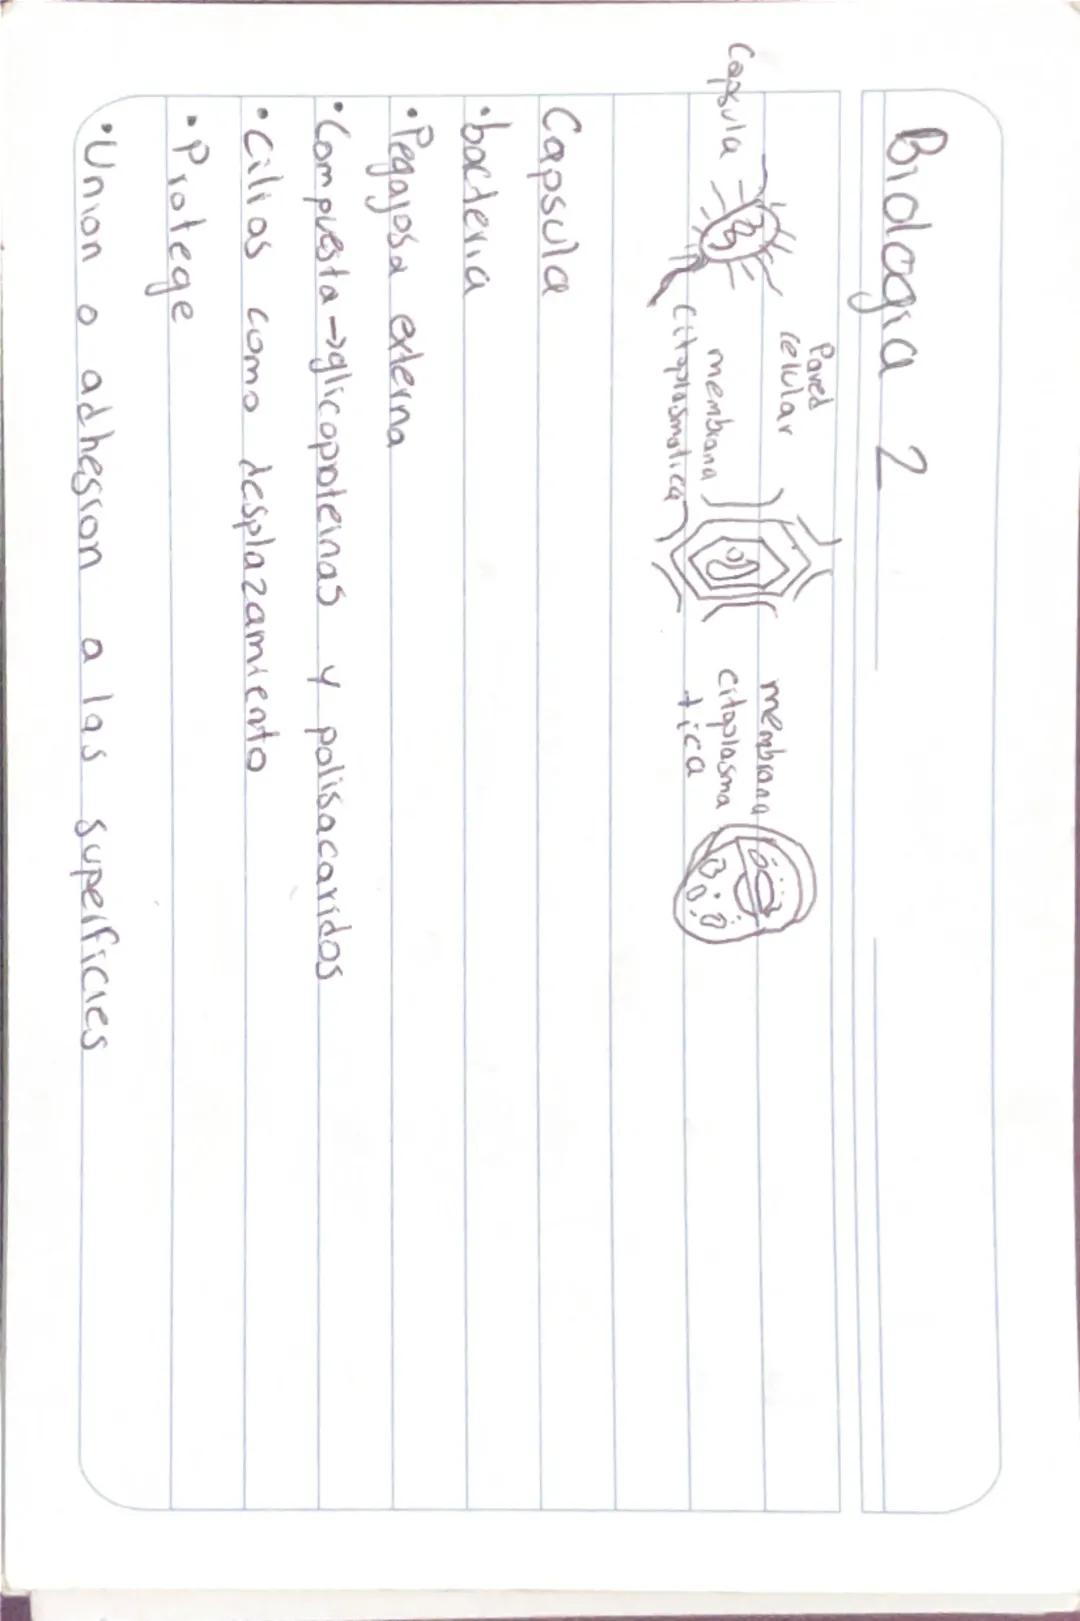 Biologia 2
Capsula
Pared
celular
membrana
citoplasmatica
membrana
citoplasma
tica
Capsula
•bacteria
•Pegajosa externa
•Compuesta→glicoproteinas y polisacaridos
•Cilios como desplazamiento
•Protege
•Union o adhesion a las superficies